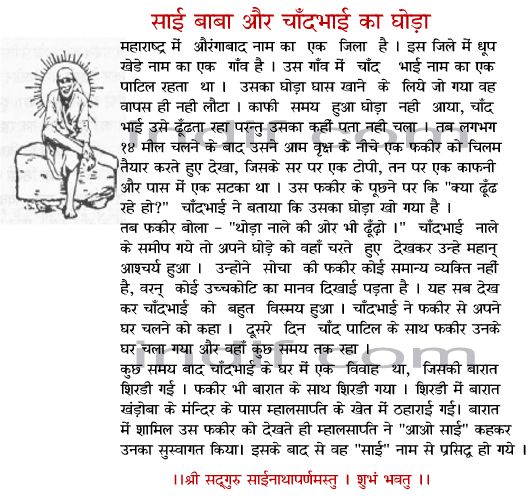 साई बाबा और चाँदभाई का घोड़ा
महाराष्ट्र में औरंगाबाद नाम का एक जिला है । इस जिले में धूप
खेड़े नाम का एक गाँव है । उस गाँव में चाँद भाई नाम का एक
पाटिल रहता था । उसका घोड़ा घास खाने के लिये जो गया वह
वापस ही नही लौटा । काफी समय हुआ घोड़ा नही आया, चाँद
भाई उसे ढूँढता रहा परन्तु उसका कहीं पता नही चला । तब लगभग
१४ मील चलने के बाद उसने आम वृक्ष के नीचे एक फकीर को चिलम
तैयार करते हुए देखा, जिसके सर पर एक टोपी, तन पर एक काफनी
और पास में एक सटका था । उस फकीर के पूछने पर कि "क्या ढूँढ
रहे हो?" चाँदभाई ने बताया कि उसका घोड़ा खो गया है ।
तब फकीर बोला - "थोड़ा नाले की ओर भी ढूँढ़ो ।" चाँदभाई नाले
के समीप गये तो अपने घोड़े को वहाँ चरते हुए देखकर उन्हे महान्
आश्चर्य हुआ । उन्होने सोचा की फकीर कोई समान्य व्यक्ति नहीं
है, वरन् कोई उच्चकोटि का मानव दिखाई पड़ता है । यह सब देख
कर चाँदभाई को बहुत विस्मय हुआ । चाँदभाई ने फकीर से अपने
घर चलने को कहा । दूसरे दिन चाँद पाटिल के साथ फकीर उनके
घर चला गया और वहाँ कुछ समय तक रहा ।
कुछ समय बाद चाँदभाई के घर में एक विवाह था, जिसकी बारात
शिरडी गई । फकीर भी बारात के साथ शिरडी गया । शिरडी में बारात
खंड़ोबा के मंन्दिर के पास म्हालसाप्ति के खेत में ठहाराई गई। बारात
में शामिल उस फकीर को देखते ही म्हालसाप्ति ने "आओ साई" कहकर
उनका सुस्वागत किया। इसके बाद से वह "साई" नाम से प्रसिद्व हो गये ।
।।श्री सद्गुरु साईनाथापर्णमस्तु । शुभं भवतु ।।
indif.com
indif.com